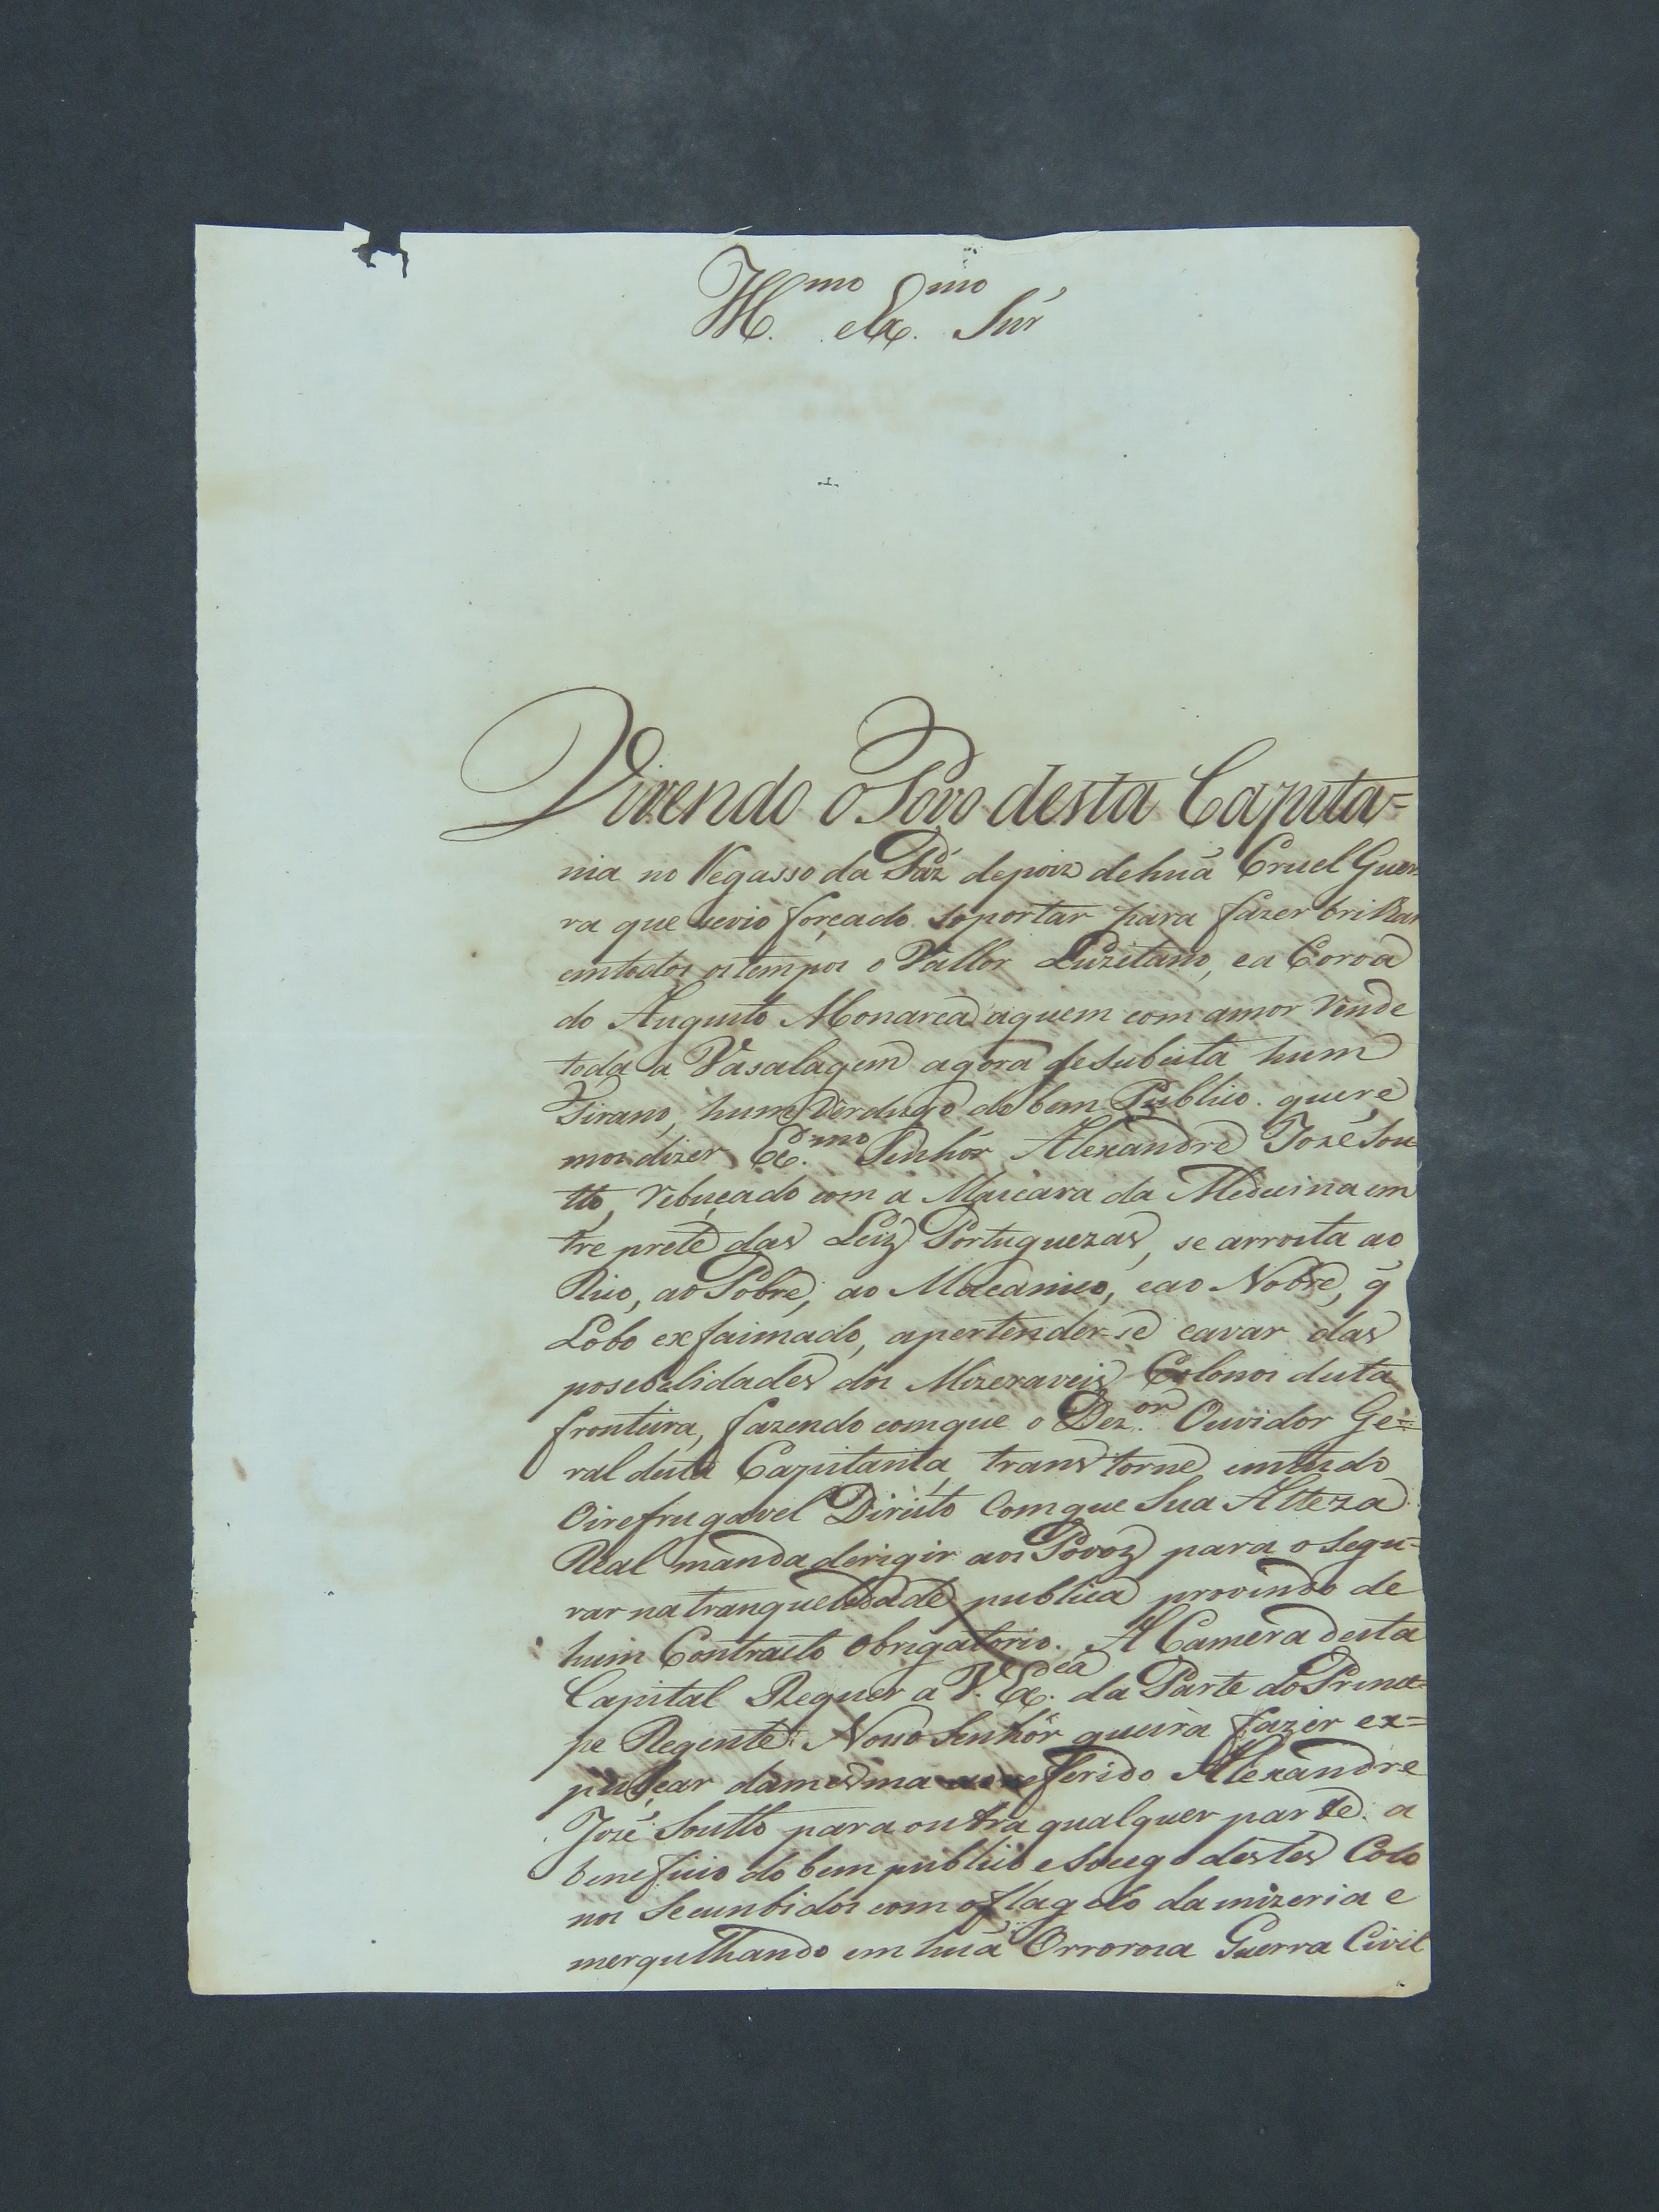 Ill.mo e Ex.mo Snr
Vivendo o Povo desta Capita=
nia no Regasso da Páz depoiz dehuã Cruel Guer
ra que sevio forçado soportar para fazer brilhar
emtodos ostempos o Vallor Luzitano, ea Coroa
do Augusto Monarca aquem com amor Rende
toda a Vasalagem agora desubeita hum
Tirano, hum Verdugo do bem Publico. quere
mos dizer Ex.mo Senhór Alexandre Jozé Sou
tto, rebuçado com a Mascara da Medecina em
tre prete das Leiz Portuguezas, se arrosta ao
Rico, ao Pobre, ao Mecanico, eao Nobre, q̃
Lobo exfaimado, apertender-se cavar das
posebelidades dos Mizeraveis Colonos desta
fronteira, fazendo comque o Dez.or Ouvidor Ge=
ral desta Capitania, transtorne emtudo
Oirefrugavel Direito Comque Sua Alteza
Real manda derigir aos Povoz para o segu=
rar na tranquelidade publica provindo de
hum Contracto obrigatorio. A Camera desta
Capital Requer a V. Ex.cea da Parte do Princi=
pe Regente Noso Senhor queira fazer ex=
pulçar damesma referido Alexandre
Jozé Soutto para outra qualquer parte a
beneficio do bem publico e Socego destes Colo
nos Secunbidos com oflagelo da mizeria e
mergulhando em huã Orroroza Guerra Civil